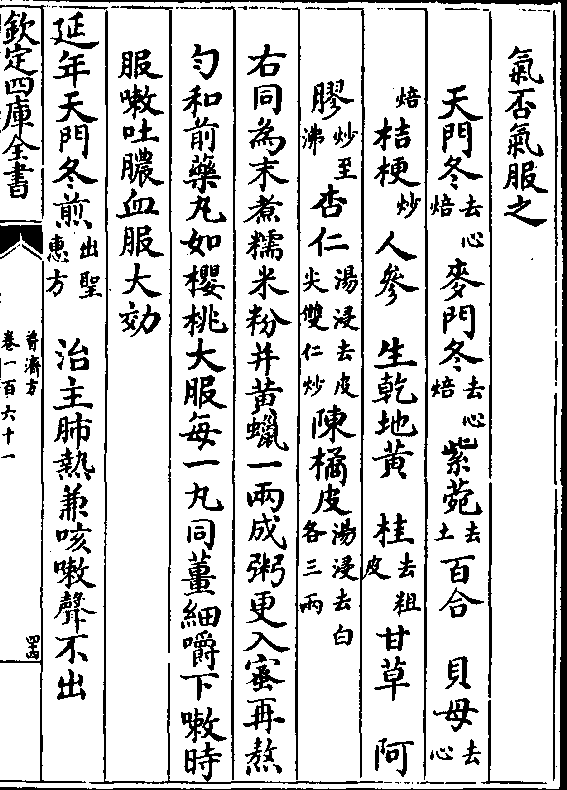 氣否氣服之
天門冬去心焙 麥門冬去心焙 紫菀去土 百合 貝母去心
焙 桔梗炒 人參 生乾地黃 桂去粗皮 甘草 阿
膠炒至沸 杏仁湯浸去皮尖雙仁炒 陳橘皮湯浸去白各三兩
右同為末煮糯米粉并黃蠟一兩成粥更入蜜再熬
勻和前藥丸如櫻桃大服每一丸同薑細嚼下嗽時
服嗽吐膿血服大効
延年天門冬煎出聖惠方 治主肺熱兼咳嗽聲不出
欽定四庫全書
普濟方
卷一百六十一